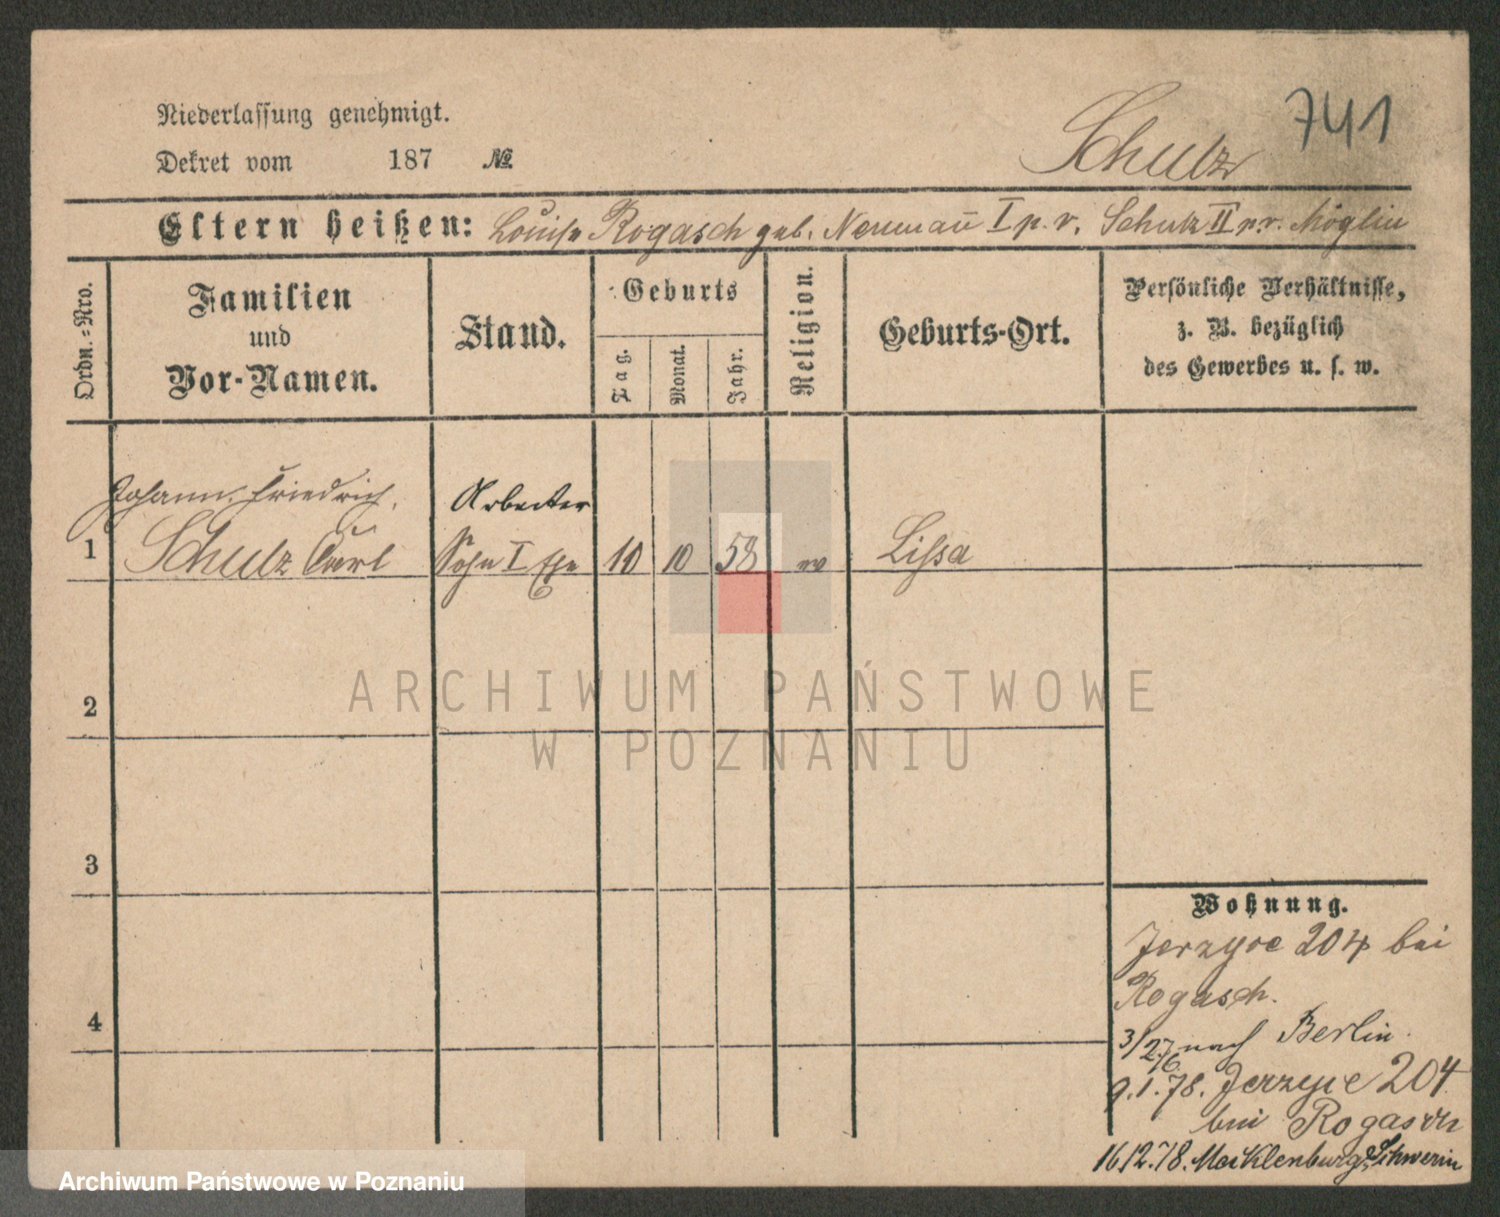 Niederlassung genehmigt.
Dekret vom 187 №
Schulz
741
Eltern heißen: Louise Rogasch geb. Neumañ I p. v. Schulz II p. v. Möglin
Ordn.-Nro.
Familien
und
Vor-Namen.
Stand.
Geburts
Tag.
Monat.
Jahr.
Religion.
Geburts-Ort.
Persönliche Verhältnisse,
z. B. bezüglich
des Gewerbes u. s. w.
Johann, Friedrich,
Arbeiter
1 Schulz Carl Sohn I Ehe 10 10 58 Lissa
2
3
4
Wohnung.
Jerzyce 204 bei
Rogasch.
3/27/6. nach Berlin.
9.1.78. Jerzyce 204
bei Rogasch
16.12.78. Mecklenburg Schwerin
ARCHIWUM PAŃSTWOWE
W POZNANIU
Archiwum Państwowe w Poznaniu